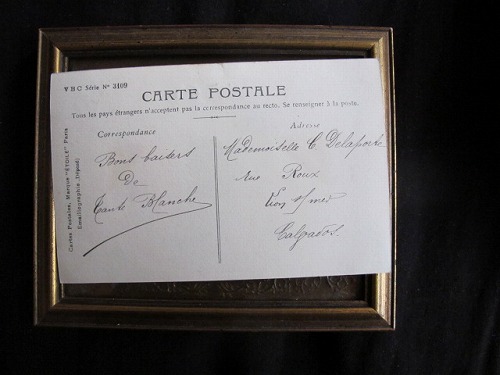 V B C Série N° 3109
CARTE POSTALE
Tous les pays étrangers n'acceptent pas la correspondance au recto. Se renseigner à la poste.
Correspondance
Bons baisers
De
Tante Blanche
Adresse
Mademoiselle C. Delaporte
rue Roux
Lion s/mer
Calvados
Cartes Postales, Marque "ÉTOILE" Paris